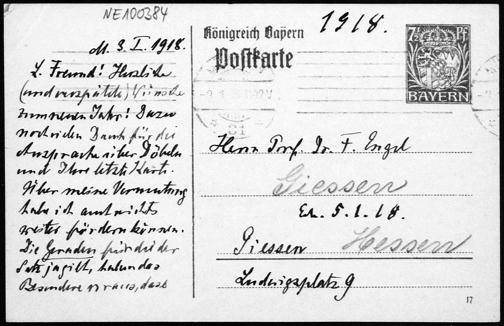 NE100384
M. 3. I. 1918.
L. Freund! Herzliche
(und verspätete) Wünsche
zum neuen Jahr! Dazu
noch vielen Dank für die
Aussprache über Döbeln
und Ihre letzte Karte.
Über meine Vermutung
habe ich auch nichts
weiter fördern können.
Die Geraden für die der
Satz ja gilt, haben das
Besondere voraus, dass
Königreich Bayern
Postkarte
1918.
7½ Pf
BAYERN
Herrn Prof. Dr. F. Engel
Giessen
Er. 5.1.18.
Giessen Hessen
Ludwigsplatz 9
17